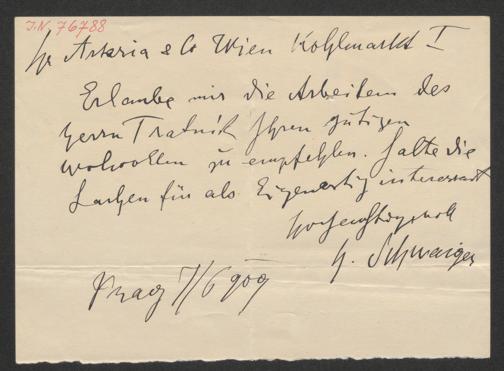 I.N. 76788
Hr Artaria & Co Wien Kohlmarkt I
Erlaube mir die Arbeiten des
Herrn Tratnik Ihren gütigen
wohwollen zu empfehlen. Halte die
Sachen für als Eigenartig interessant
Hochachtungsvoll
H. Schwaiger
Prag 7/6 909